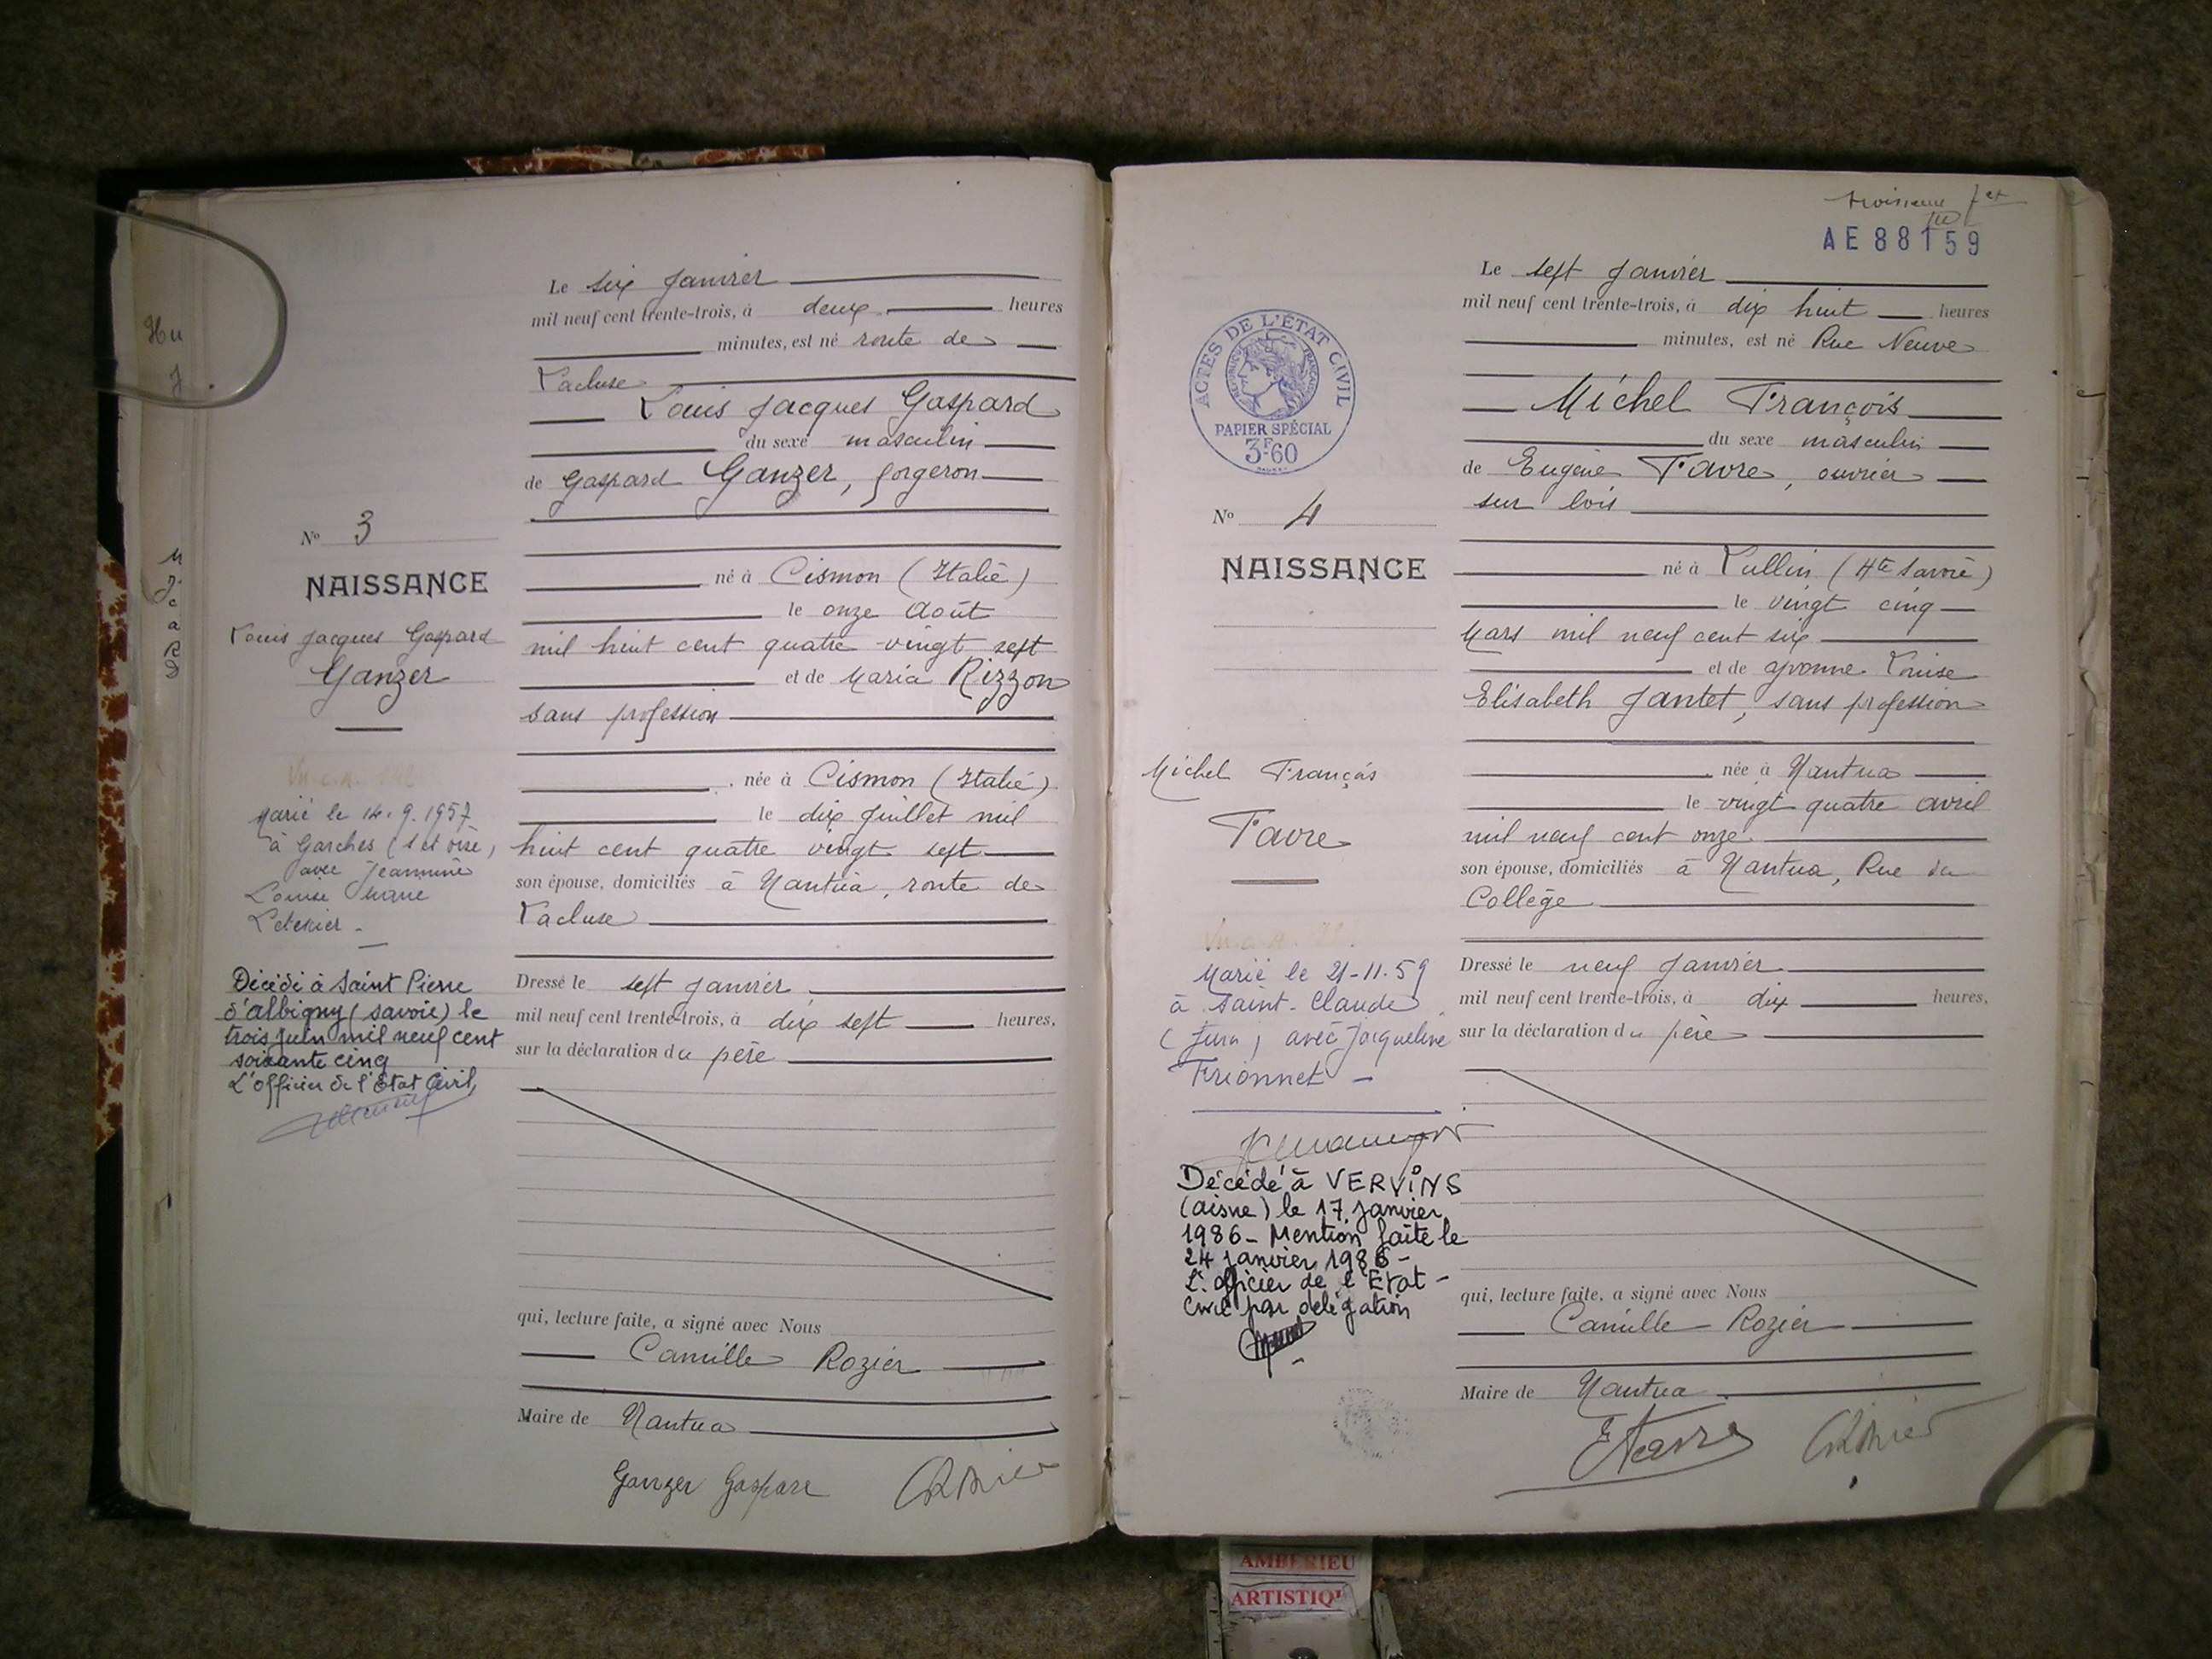 Le six Janvier
mil neuf cent trente-trois, à deux heures
minutes, est né route de
Lacluse
Louis Jacques Gaspard
du sexe masculin
de Gaspard Ganzer, forgeron
No 3
NAISSANCE
Louis Jacques Gaspard
Ganzer
né à Cismon (Italie)
le onze Août
mil huit cent quatre-vingt sept
et de Maria Rizzon
sans profession
née à Cismon (Italie)
le dix Juillet mil
huit cent quatre vingt sept
son épouse, domiciliés à Nantua, route de
Lacluse
Dressé le sept Janvier
mil neuf cent trente-trois, à dix sept heures,
sur la déclaration du père
Marié le 14.9.1957
à Garches (S et Oise)
avec Jeannine
Louise
Décédé à Saint Pierre
d'Albigny (Savoie) le
trois Juin mil neuf cent
soixante cinq
L'officier de l'Etat Civil,
qui, lecture faite, a signé avec Nous
Camille Rozier
Maire de Nantua
Ganzer Gaspare
troisième
AE 88159
Le sept Janvier
mil neuf cent trente-trois, à dix huit heures
minutes, est né Rue Neuve
Michel François
du sexe masculin
de Eugène Favre, ouvrier
sur bois
ACTES DE L'ÉTAT CIVIL
PAPIER SPÉCIAL
3F60
No 4
NAISSANCE
Michel François
Favre
né à Lullin (Hte Savoie)
le vingt cinq
Mars mil neuf cent six
et de Yvonne Louise
Elisabeth Jantet, sans profession
née à Nantua
le vingt quatre avril
mil neuf cent onze
son épouse, domiciliés à Nantua, Rue du
Collège
Dressé le neuf Janvier
mil neuf cent trente-trois, à dix heures,
sur la déclaration du père
Marié le 21-11-59
à Saint-Claude
(Jura) avec Jacqueline
Frionnet -
Décédé à VERVINS
(aisne) le 17 Janvier
1986 - Mention faite le
24 Janvier 1986 -
L'officier de l'Etat -
Civil par délégation
qui, lecture faite, a signé avec Nous
Camille Rozier
Maire de Nantua
AMBERIEU
ARTISTIQ